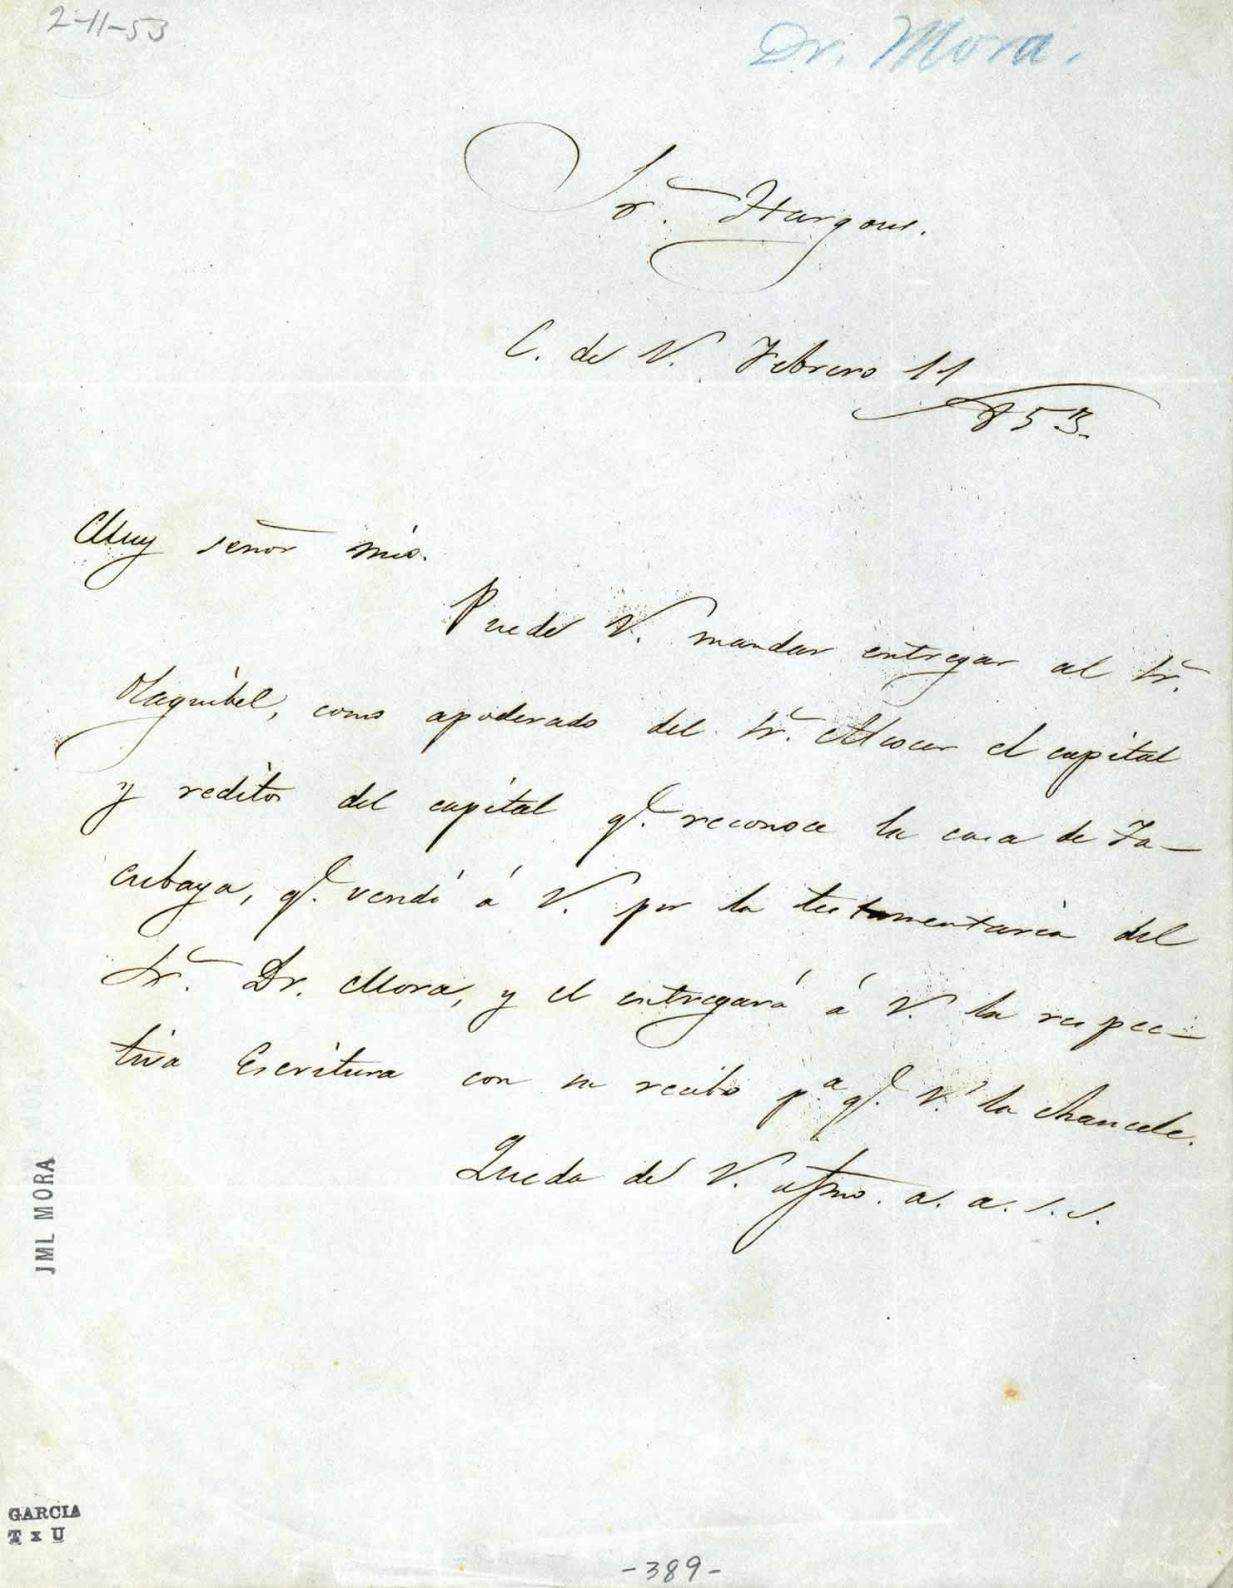 2-11-53
Dr. Mora.
Sr. Hargous.
C. de V. Febrero 11
/853.
Muy señor mio.
Puede V. mandar entregar al Sr.
Olaguibel, como apoderado del Sr. el capital
y reditos del capital q. reconoce la casa de Ta-
cubaya, q. vendí á V. por la testamentaria del
Sr. Dr. Mora, y el entregará á V. la respec-
tiva Escritura con su recibo pa. q. V. la chancele.
Queda de V. afmo. a. a. s. s.
JML MORA
GARCIA
T x U
-389-